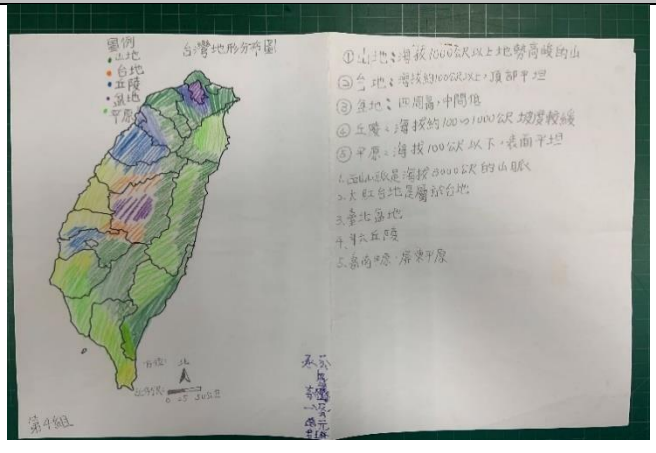 圖例
山地
台地
丘陵
盆地
平原
台灣地形分布圖
①山地:海拔1000公尺以上地勢高峻的山
②台地:海拔約100公尺以上,頂部平坦
③盆地:四周高,中間低
④丘陵:海拔約100~1000公尺坡度較緩
⑤平原:海拔100公尺以下,表面平坦
是海拔3000公尺的山脈
2.大肚台地是屬於台地
3.臺北盆地
4.丘陵
5.嘉南平原、屏東平原
方位: 北
比例尺:
0 25 50公里
第4組